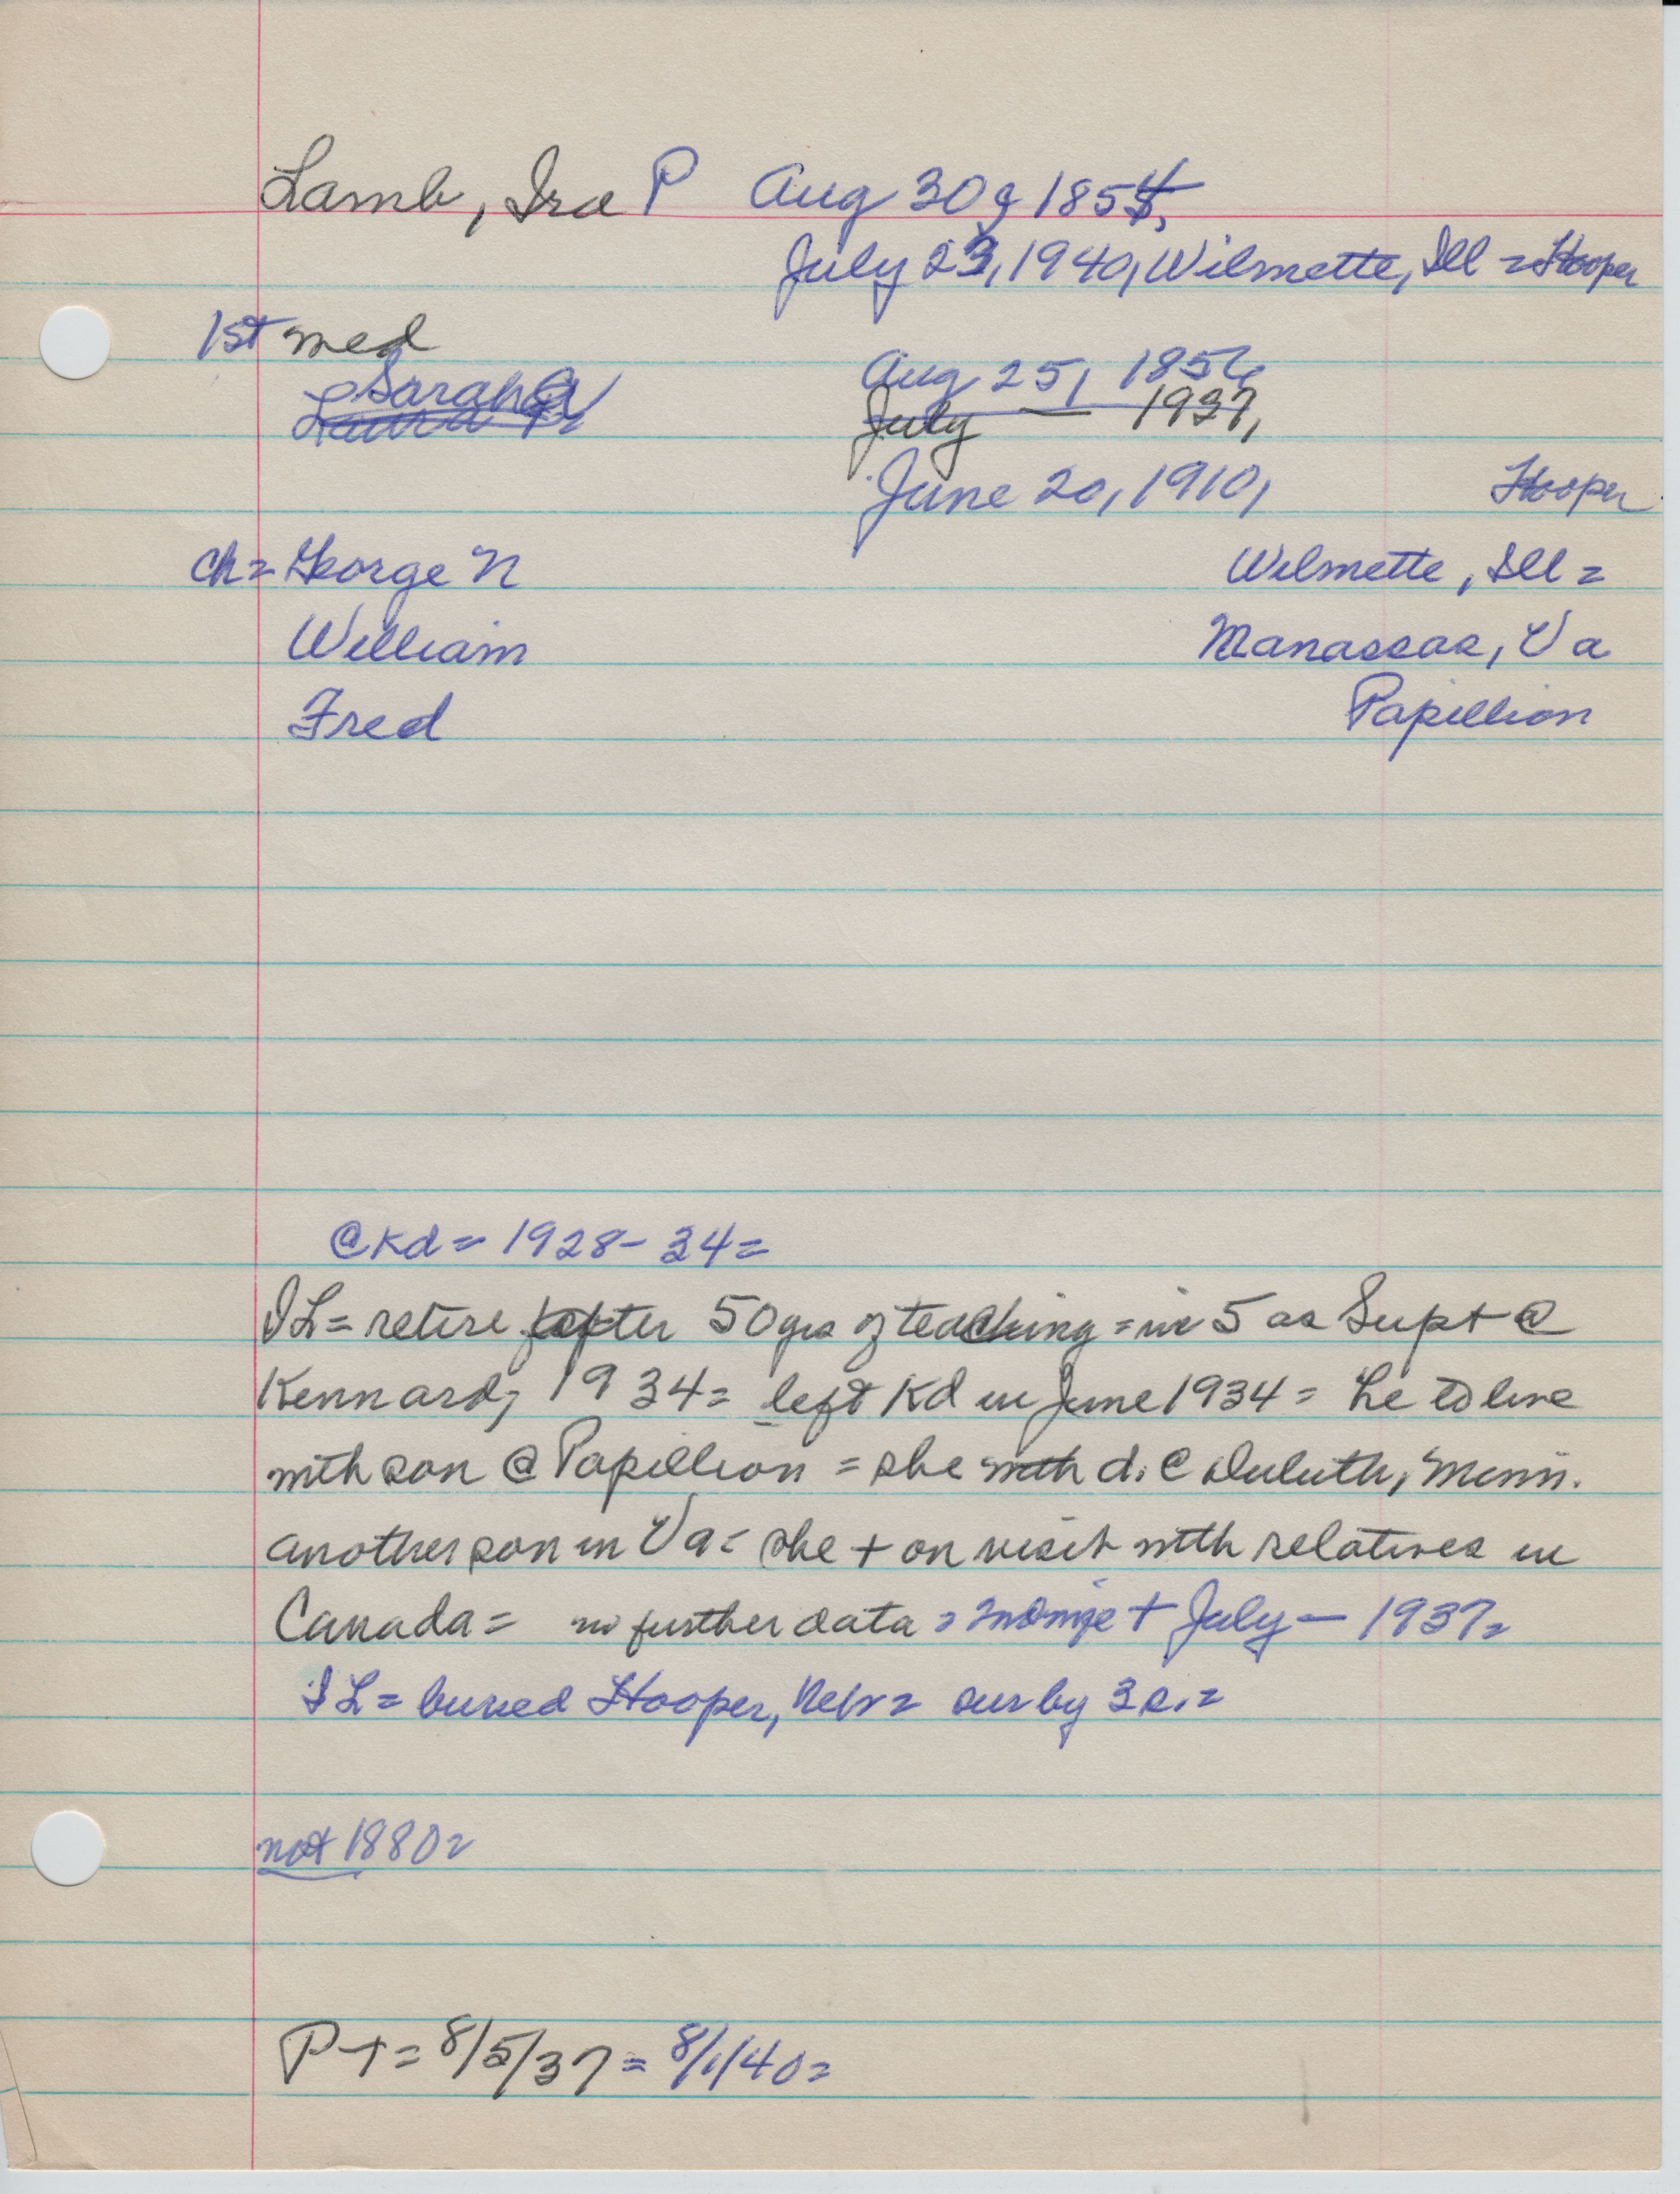 Lamb, Ira P Aug 30, 1854,
July 23, 1940, Wilmette, Ill = Hooper
1st med
Sarah A Aug 25, 1856
Laura July — 1937,
June 20, 1910, Hooper
ch = George N Wilmette, Ill =
William Manassas, Va
Fred Papillion
@ Kd = 1928 - 34 =
IL = retire after 50 yrs of teaching = in 5 as Supt @
Kennard, 1934 = left Kd in June 1934 = he to live
with son @ Papillion = she with d. @ Duluth, Minn.
another son in Va = she + on visit with relatives in
Canada = no further data = + July — 1937 =
IL = buried Hooper, Nebr = sur by 3 s. =
not 1880 =
PT = 8/5/37 = 8/1/40 =